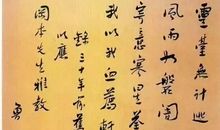 靈臺無計逃
風雨如磐闇
寄意寒星荃
我以我血薦軒
録三十年前舊
以應
岡本先生雅教